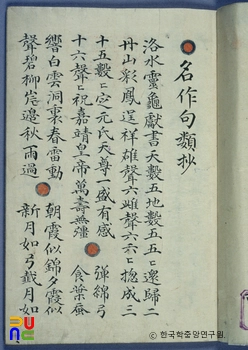 名作句類抄
洛水靈龜獻書天數五地數五五〻還歸二
丹山彩鳳呈祥雄聲六雌聲六六〻捴成三
十五數〻定元氏天尊一盛有感 彈綿弓
十六聲〻祝嘉靖皇帝萬壽無疆 食葉蚕
響白雲洞裏春雷動 朝霞似錦夕霞似
聲碧柳㟁邊秋雨過 新月如弓戴月如
© 한국학중앙연구원